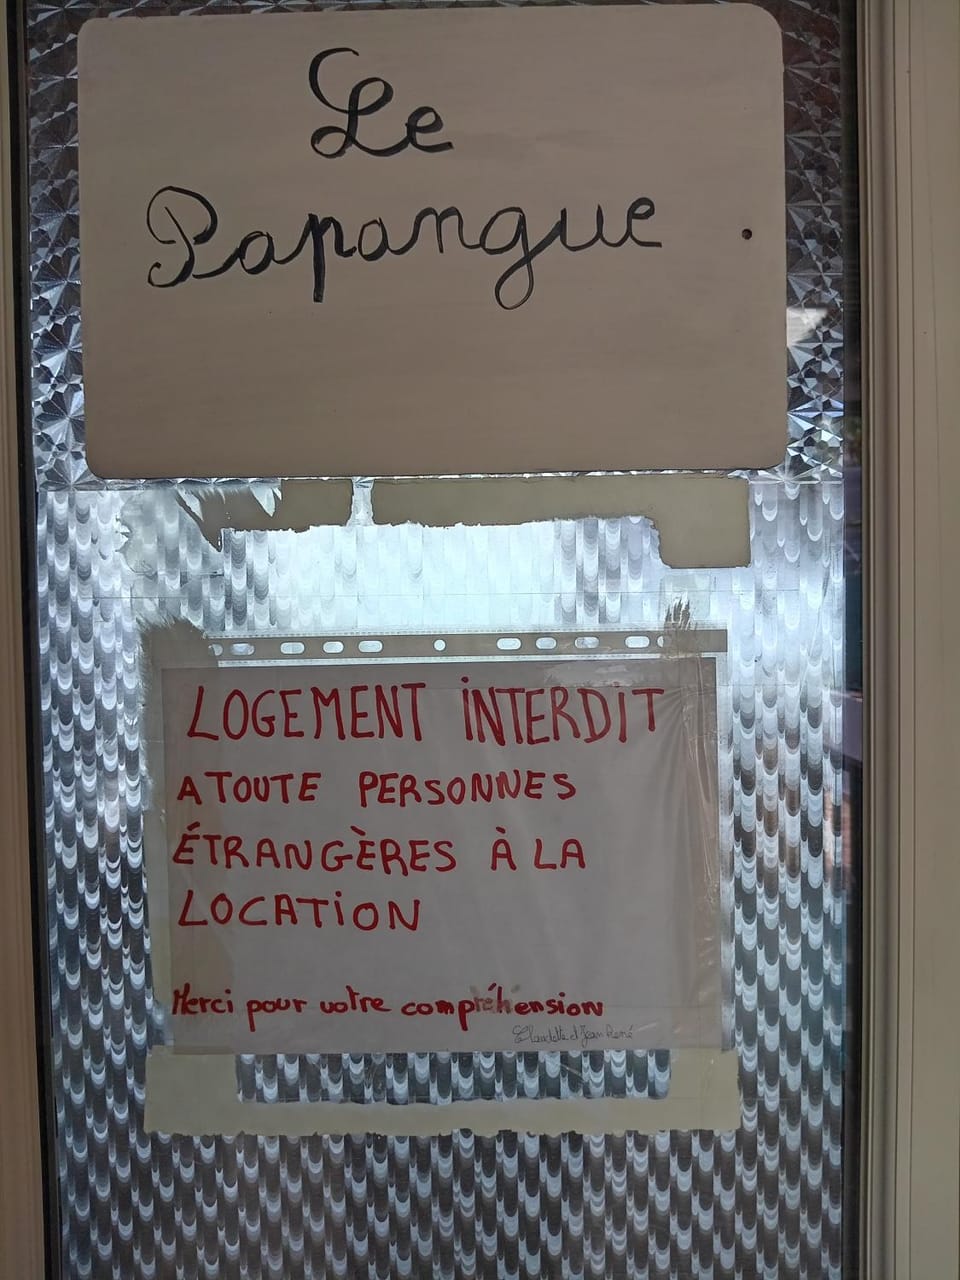 Le
Papangue
LOGEMENT INTERDIT
A TOUTE PERSONNES
ÉTRANGÈRES À LA
LOCATION
Merci pour votre compréhension
Claudette et Jean René